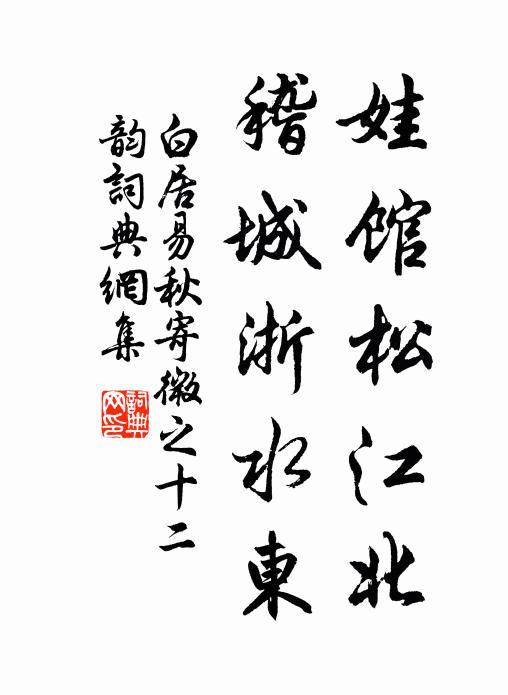 娃館松江北
稽城浙水東
白居易秋寄微之十二
韵詞典網集
詞典
网印